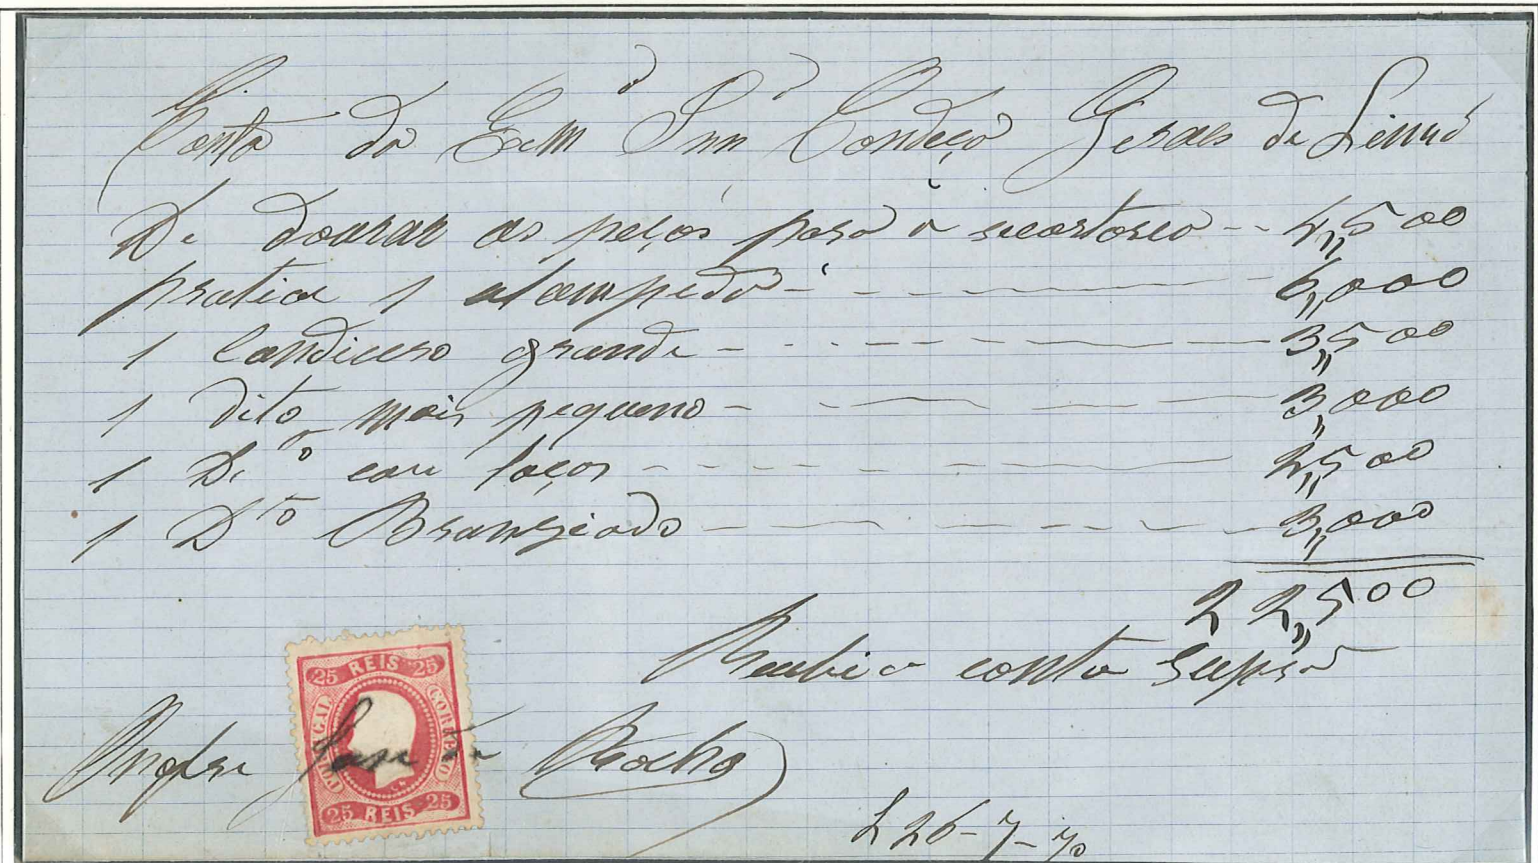 Conta do Exmo Snr Condeça Geraz de Lima
De dourar as peças para a secartoreo -- 4,,500
pratiar 1 alampeda - - - - 6,,000
1 Candieero grande - - - - 3,,500
1 dito mais pequeno - - - - 3,,000
1 Do com laços - - - - 2,,500
1 Dto Branziado - - - - 3,,000
22,,500
Recebi a conta supra
José da Rocha
L 26-7-70
25 REIS 25
PORTUGAL CORREIO
25 REIS 25